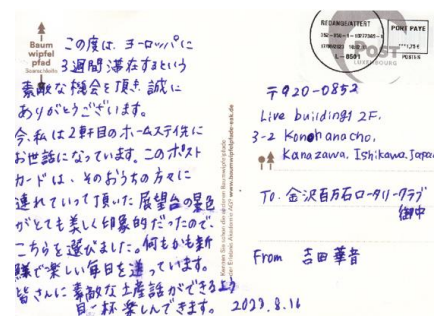 Baum
wipfel
pfad
この度は、ヨーロッパに
3週間滞在するという
素敵な機会を頂き、誠に
ありがとうございます。
今、私は2軒目のホームステイ先に
お世話になっています。このポスト
カードは、そのおうちの方々に
連れていって頂いた展望台の景色
がとても美しく印象的だったので
こちらを選びました。何もかも新
鮮で楽しい毎日を送っています。
皆さんに素敵な土産話ができるよう
目一杯楽しんできます。 2023.8.16
www.baumwipfelpfade-eak.de
PORT PAYÉ
L-8551
POST
LUXEMBOURG
〒920-0852
Live building1 2F.
3-2 Konohanacho,
Kanazawa, Ishikawa, Japan
To. 金沢百万石ロータリークラブ
御中
From 吉田華音